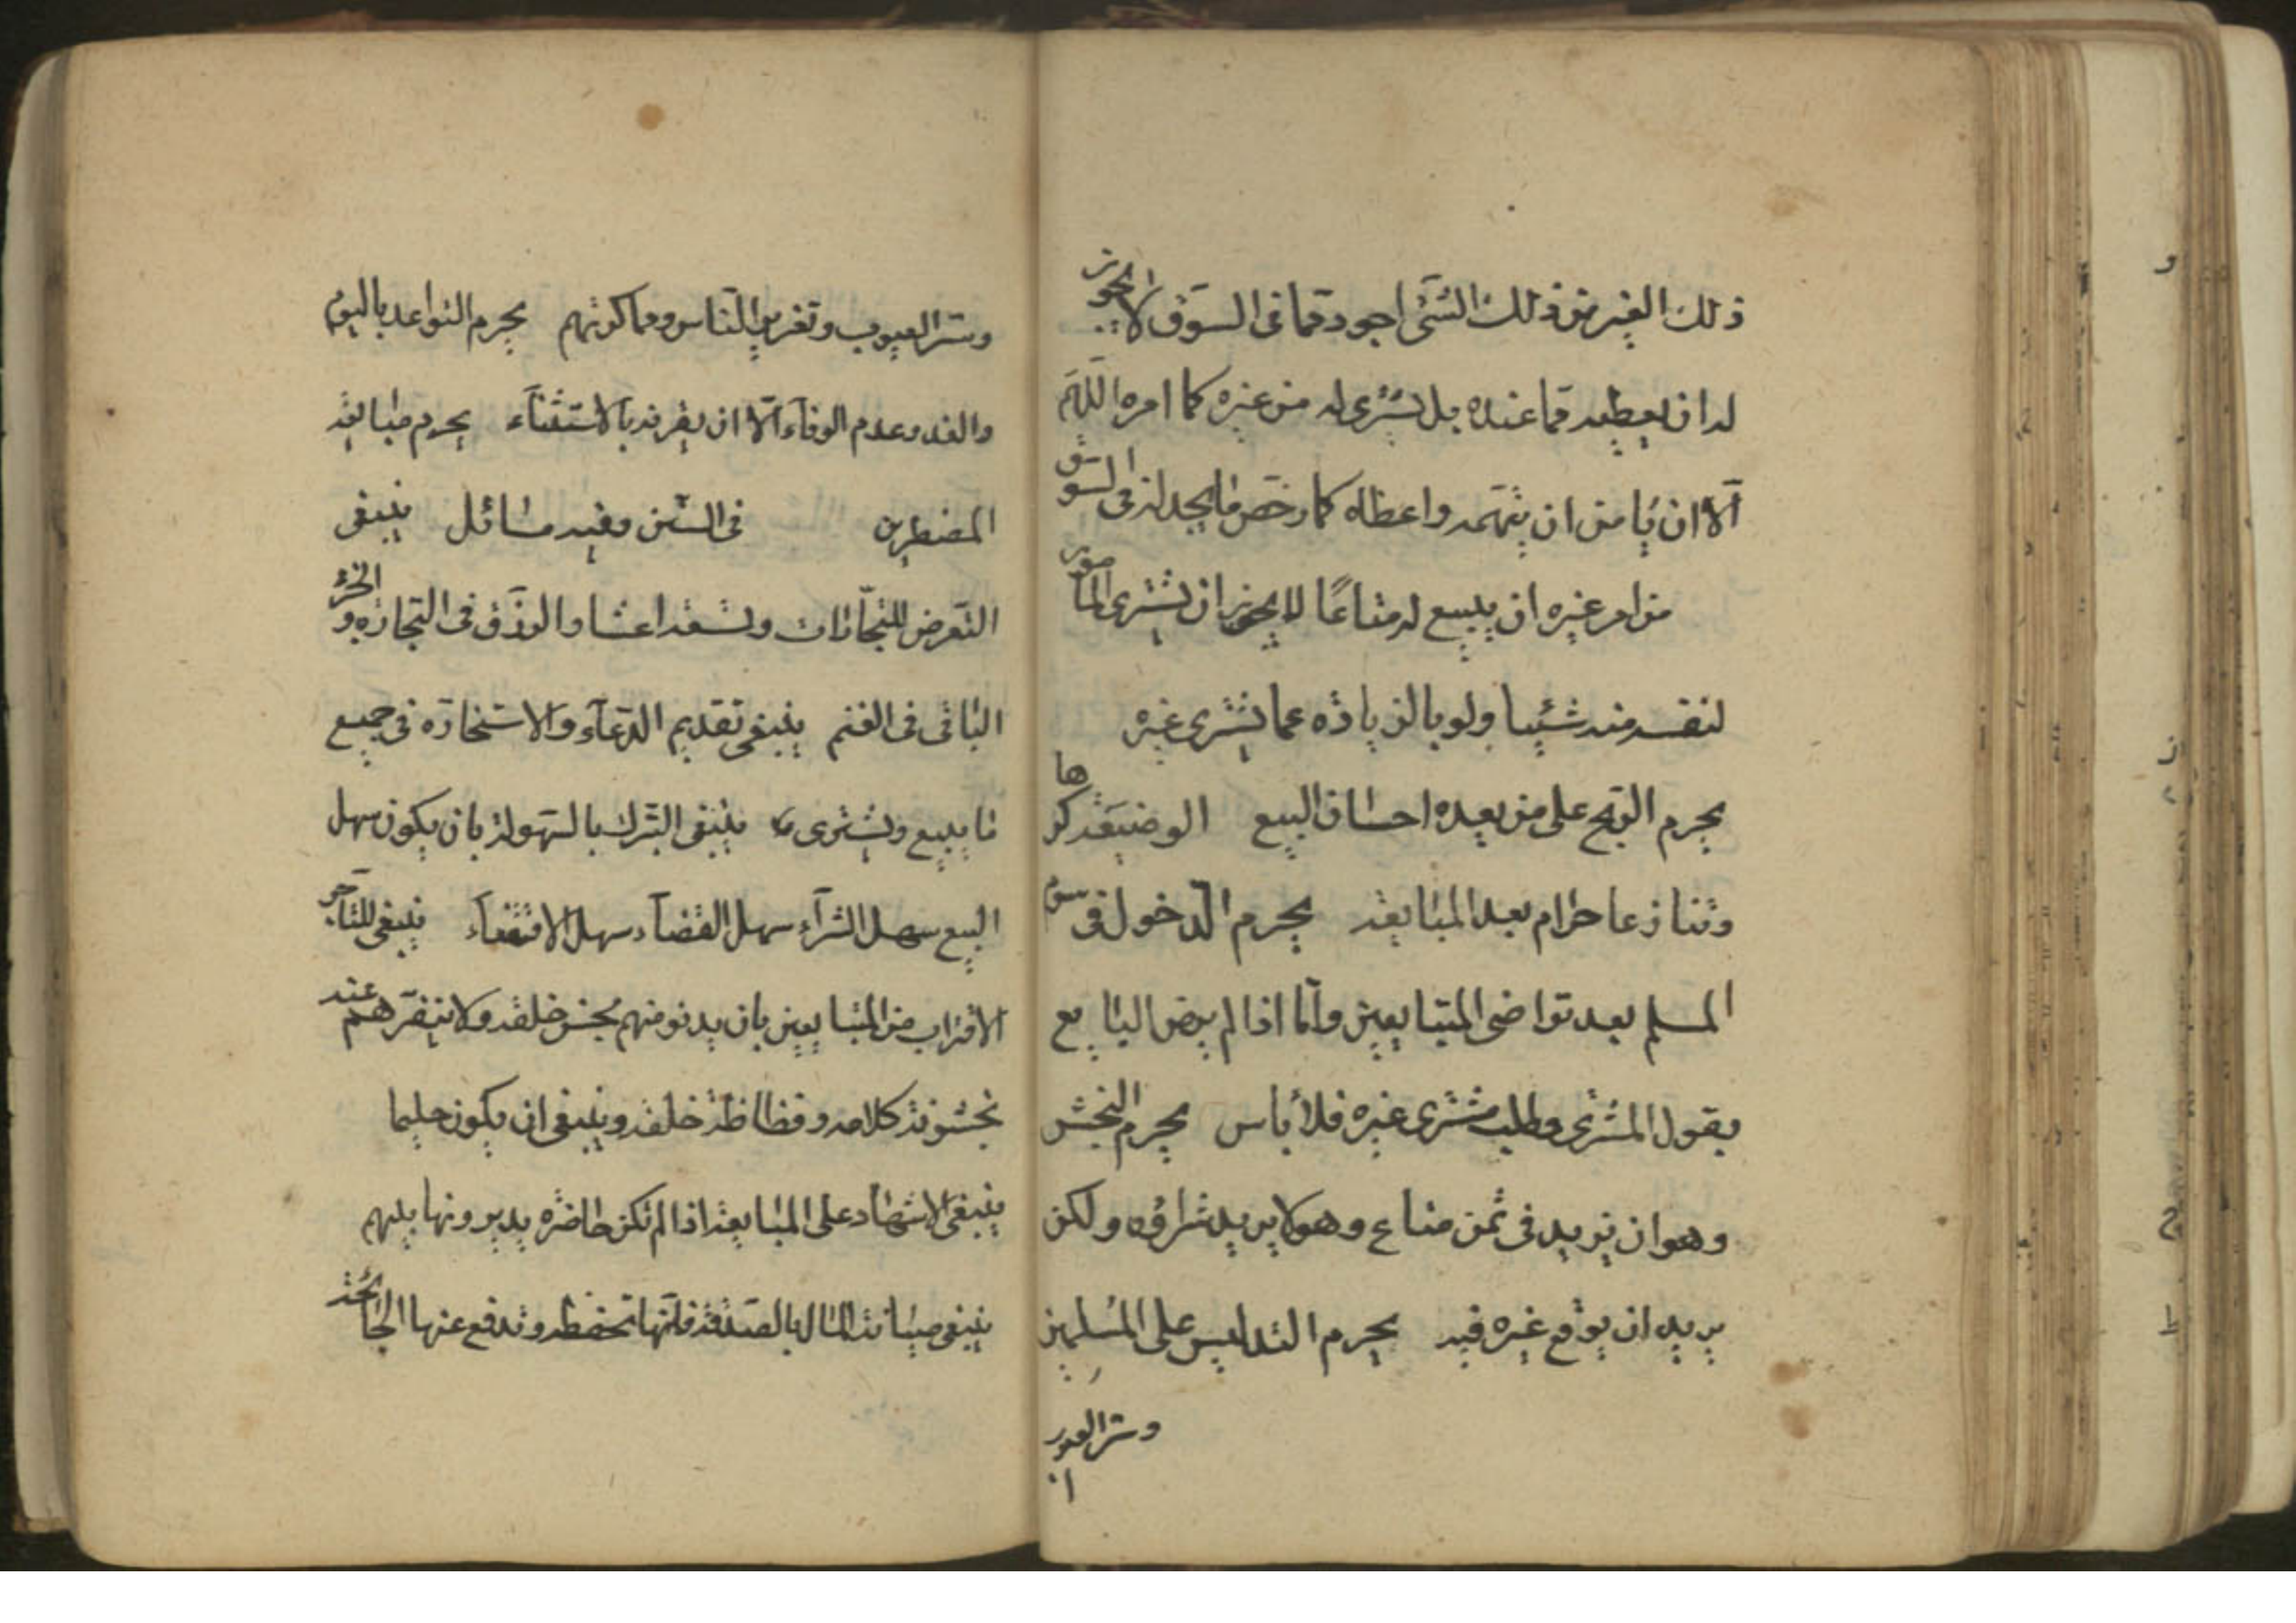 ذلك الغير من ذلك الشئ اجود مما فى السوق لا يجوز
له ان يعطيه مما عنده بل يشترى له من غيره كما امره اللهم
الا ان يأمن ان يتهمه واعطاه كما رخص ما يجد له فى السوق
من امر غيره ان يبيع له متاعًا لا يجوز ان يشترى المأمور
لنفسه منه شئيا ولو بالزيادة عما يشترى غيره
يحرم الربح على من يعده احسان البيع الوضيعة كرها
وتنازعا حرام بعد المبايعة يحرم الدخول فى سوم
المسلم بعد تراضى المتبايعين واما اذا لم يرض البايع
بقول المشترى وطلب مشترى غيره فلا بأس يحرم النجش
وهو ان يزيد فى ثمن متاع وهو لا يريد شراؤه ولكن
يريد ان يوقع غيره فيه يحرم التدليس على المسلمين
وستر العيوب
وستر العيوب وتغرير الناس ومماكرتهم يحرم التواعد باليوم
والغد وعدم الوفاء الا ان يقرنه بالاستثناء يحرم مبايعة
المضطرين فى السنن وفيه مسائل ينبغى
التعرض للتجارات وتسعة اعشار الرزق فى التجارة والجزء
الباقى فى الغنم ينبغى تقديم الدعاء والاستخارة فى جميع
ما يبيع ويشترى ينبغى التبرك بالسهولة بان يكون سهل
البيع سهل الشرآء سهل القضاء سهل الاقتضاء ينبغى للتاجر
الاقتراب من المتبايعين بان يدنو منهم بحسن خلقه ولا ينفرهم عنه
بخشونة كلامه وفظاظة خلقه وينبغى ان يكون حليما
ينبغى الاشهاد على المبايعة اذا لم تكن حاضرة يديرونها بينهم
ينبغى صيانة المال بالصدقة فانها تحفظه وتدفع عنها الجائحة